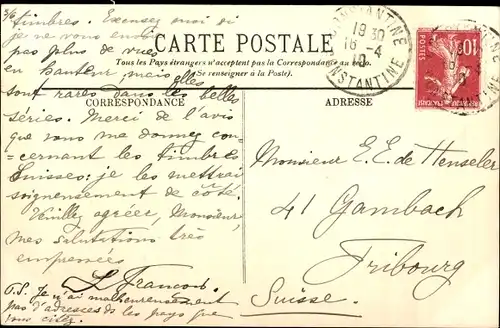 3/6 timbres. Excusez moi si
je ne vous envoie
pas plus de vues
en hauteur, mais elles
sont rares dans les belles
séries. Merci de l'avis
que vous me donnez con-
cernant les timbres
Suisses: je les mettrai
soigneusement de côté.
Veuillez agréer, Monsieur,
mes salutations très
empressées
L François
P.S. Je n'ai malheureusement
pas d'adresses ds les pays que
vous citez.
CARTE POSTALE
Tous les Pays étrangers n'acceptent pas la Correspondance au recto.
(Se renseigner à la Poste).
CORRESPONDANCE
ADRESSE
CONSTANTINE
19 30
16 - 4
10
CONSTANTINE
POSTES
10
Monsieur E. E. de Henseler
41 Gambach
Fribourg
Suisse.